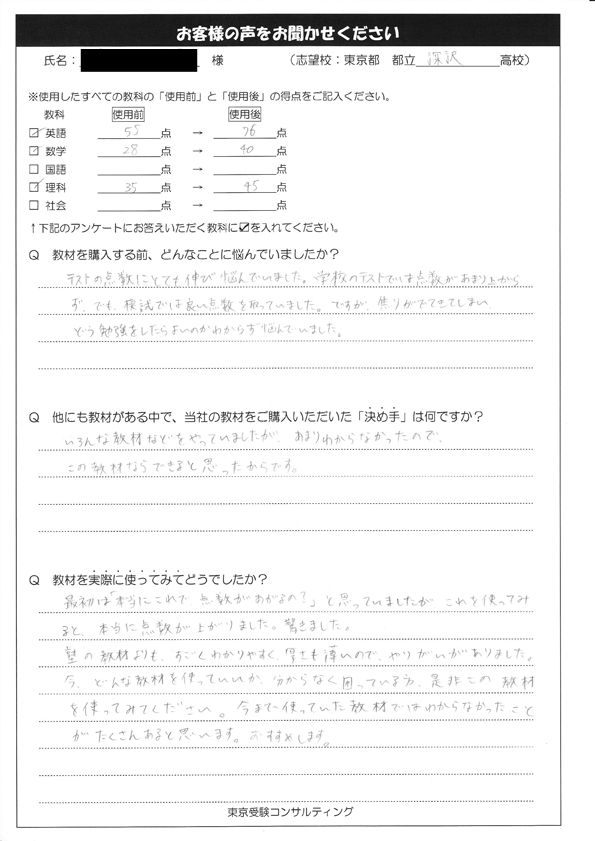 お客様の声をお聞かせください
氏名： 様 （志望校：東京都 都立 深沢 高校）
※使用したすべての教科の「使用前」と「使用後」の得点をご記入ください。
教科 使用前 使用後
☑ 英語 55 点 → 76 点
☑ 数学 28 点 → 40 点
□ 国語 点 → 点
☑ 理科 35 点 → 45 点
□ 社会 点 → 点
↑下記のアンケートにお答えいただく教科に☑を入れてください。
Q 教材を購入する前、どんなことに悩んでいましたか？
テストの点数にとても伸び悩んでいました。学校のテストでは点数があまり上がら
ず、でも、模試では良い点数を取っていました。ですが、焦りがでてきてしまい、
どう勉強をしたらよいのかわからず悩んでいました。
Q 他にも教材がある中で、当社の教材をご購入いただいた「決め手」は何ですか？
いろんな教材などをやっていましたが、あまりわからなかったので、
この教材ならできると思ったからです。
Q 教材を実際に使ってみてどうでしたか？
最初は「本当にこれで、点数があがるの？」と思っていましたが、これを使ってみ
ると、本当に点数が上がりました。驚きました。
塾の教材よりも、すごくわかりやすく、厚さも薄いので、やりがいがありました。
今、どんな教材を使っていいか、分からなく困っている方、是非この教材
を使ってみてください。今まで使っていた教材ではわからなかったこと
がたくさんあると思います。おすすめします。
東京受験コンサルティング